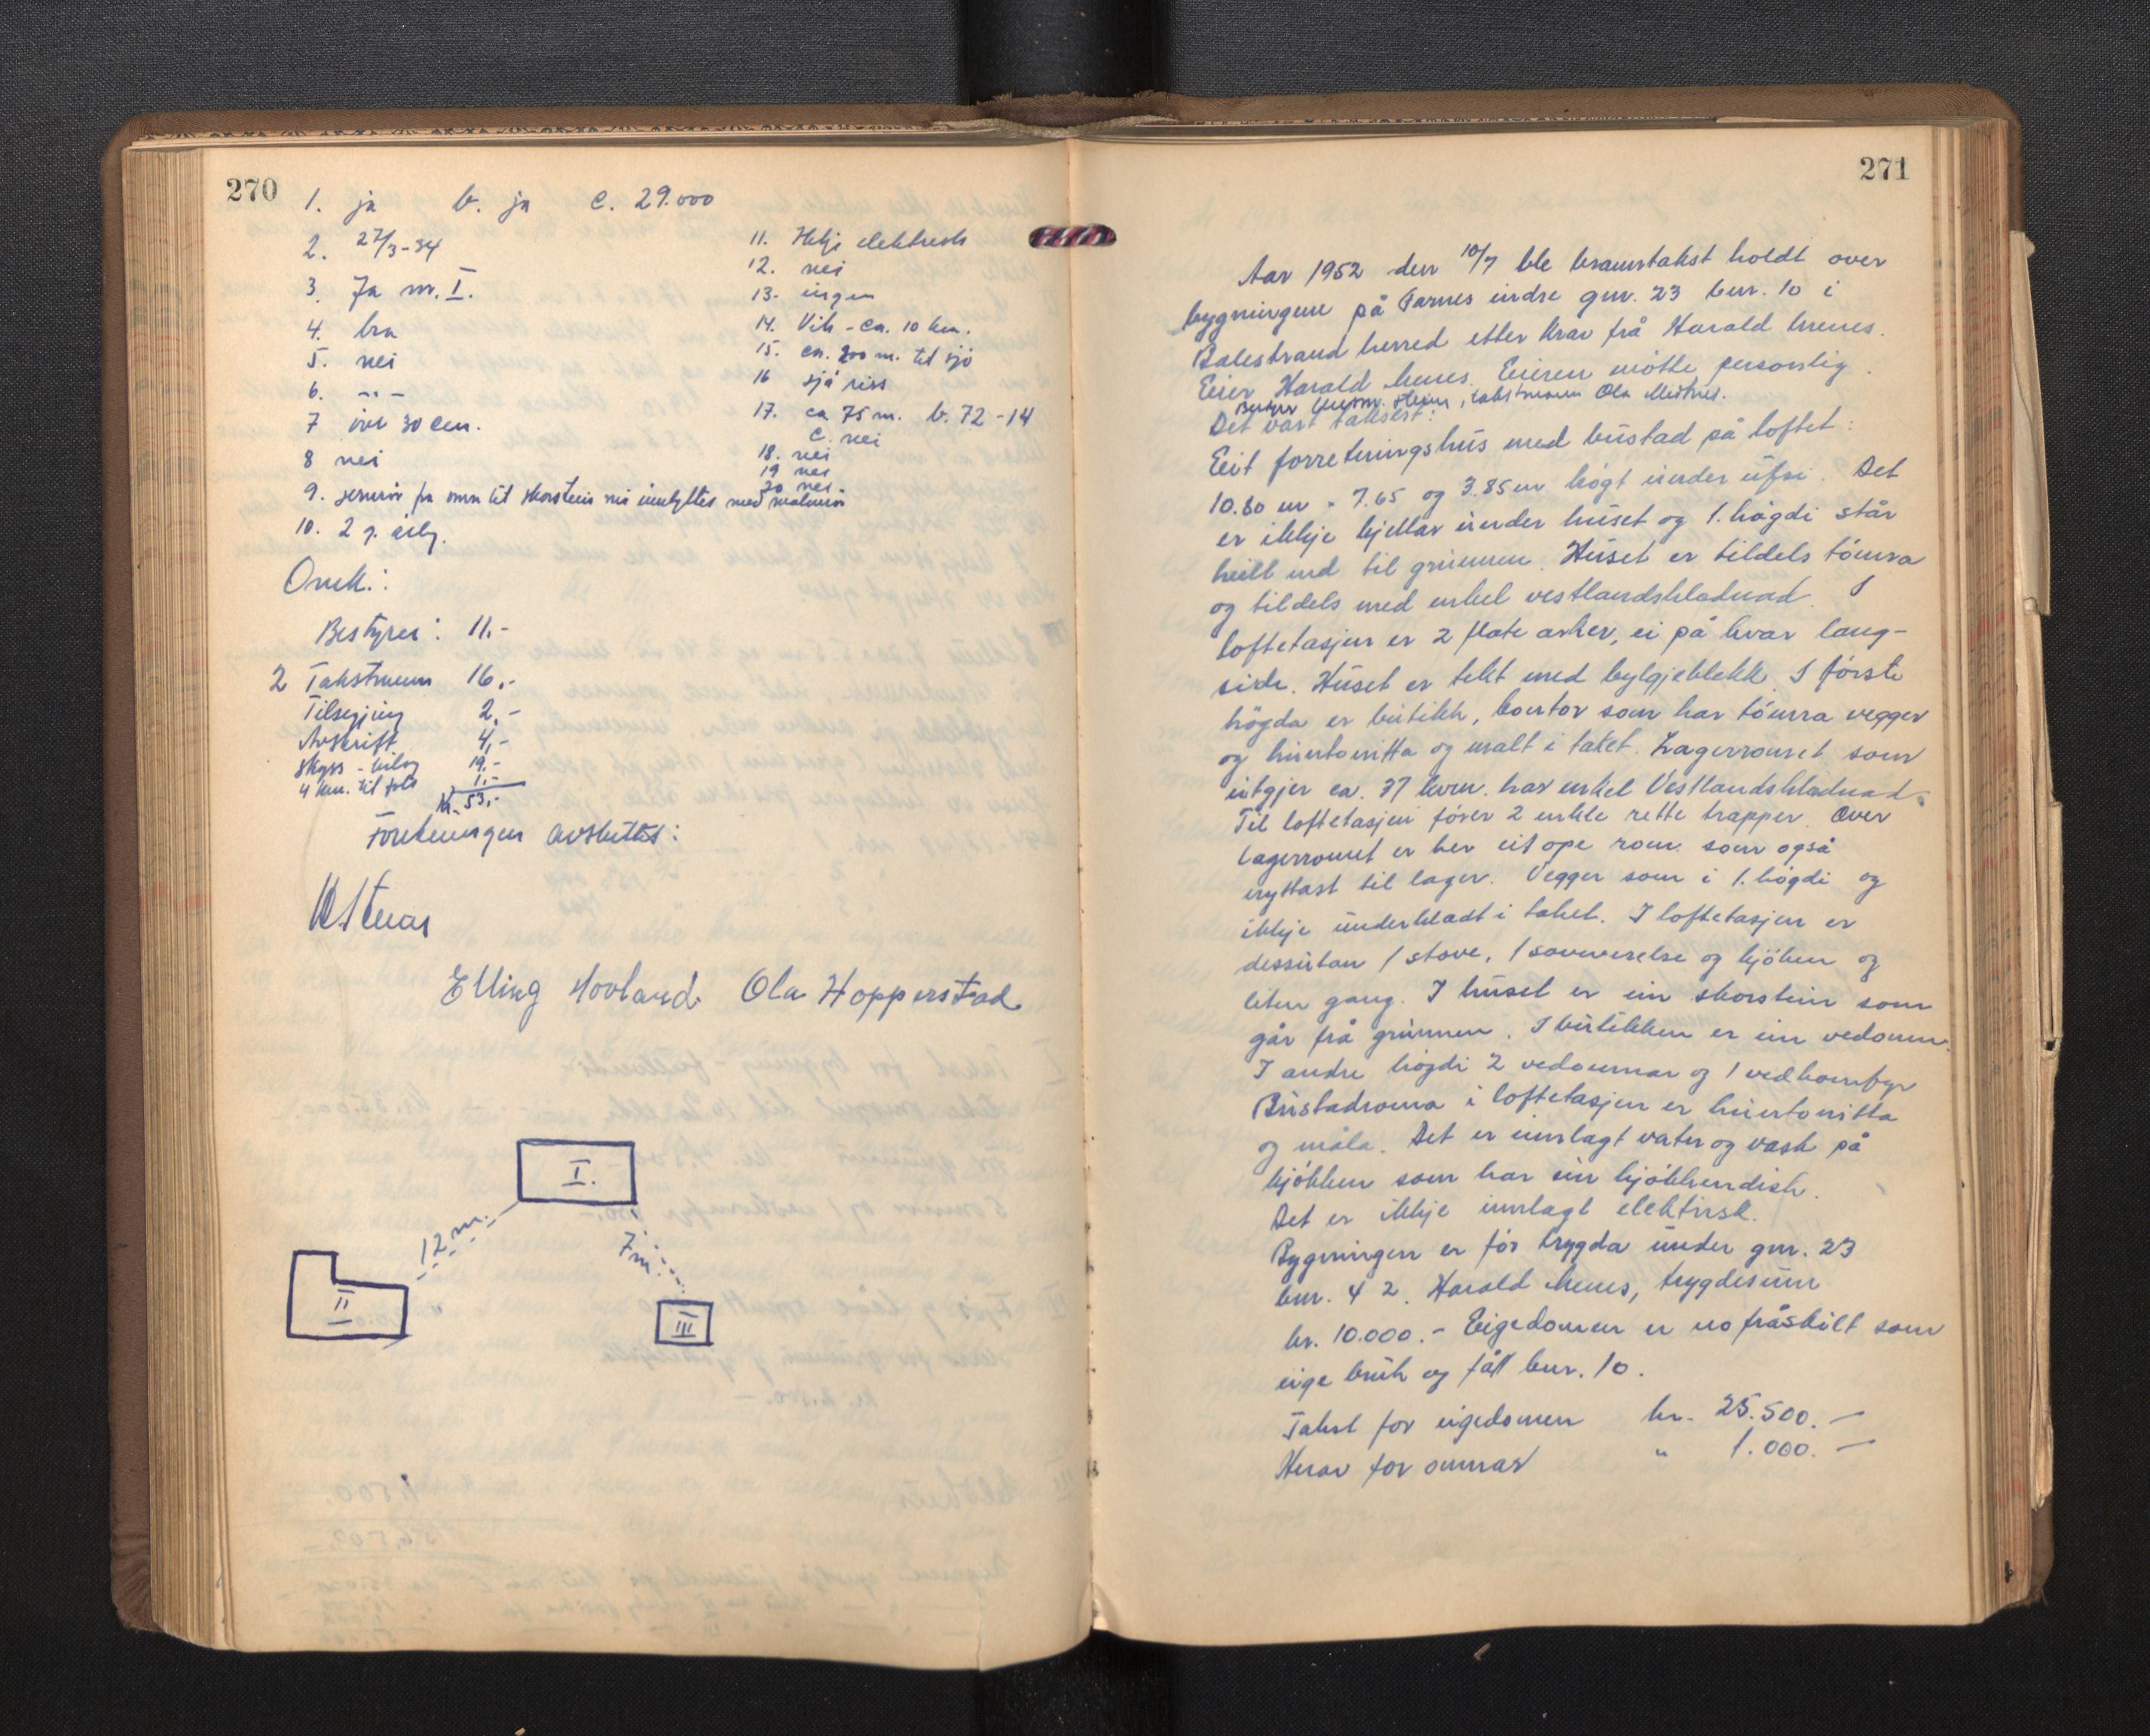 270
1. ja b. ja c. 29.000
2. 27/3-34
3. Ja nr. I.
4. bra
5. nei
6. -"-
7 over 30 cm.
8 nei
9. jernrör fra omn til skorstein
10. 2 g. årlg.
11. Ikkje elektrisk
12. nei
13. ingen
14. Vik - ca. 10 km.
15. ca. 200 m. til sjö
16 sjå riss
17. ca 75 m. b. 72-14
c. nei
18. nei
19 nei
20 nei.
Omk.:
Bestyrer: 11.-
2 Takstmenn 16,-
Tilsegjing 2,-
Avskrift 4,-
Skyss - bilog 19,-
4 km. til fots 1.-
kr. 53,-
Forretningen avsluttet:
Elling Hovland Ola Hopperstad
I.
12 m.
7 m.
II
III
271
Aar 1952 den 10/7 ble branntakst holdt over
bygningene på Farnes indre gnr. 23 bnr. 10 i
Balestrand herred etter krav frå Harald
Eier Harald Eieren mötte personlig.
takstmenn Ola
Det vart taksert:
Eit forretningshus med bustad på loftet:
10.80 m × 7.65 og 3.85 m högt under ufsi. Det
er ikkje kjellar under huset og 1. högdi står
heilt ned til grunnen. Huset er tildels tömra
og tildels med enkel vestlandskladnad. I
loftetasjen er 2 flate arker, ei på kvar lang-
side. Huset er tekt med bylgjeblekk. I förste
högda er butikk, kontor som har tömra vegger
og huntonitta og malt i taket. Lagerromet som
utgjer ca. 37 kvm. har enkel Vestlandskladnad.
Til loftetasjen förer 2 enkle rette trapper. Over
lagerromet er her eit ope rom som også
nyttast til lager. Vegger som i 1. högdi og
ikkje underkladt i taket. I loftetasjen er
dessutan 1 stove, 1 soveverelse og kjöken og
liten gang. I huset er ein skorstein som
går frå grunnen. I butikken er ein vedomn.
I andre högdi 2 vedomnar og 1 vedkomfyr
Bustadroma i loftetasjen er huntonitta
og måla. Det er innlagt vatn og vask på
kjökken som har ein kjökkendisk.
Det er ikkje innlagt elektrisk.
Bygningen er för trygda under gnr. 23
bnr. 4 2. Harald trygdesum
kr. 10.000.- Eigedomen er no fråskilt som
eige bruk og fått bnr. 10.
Takst for eigedomen kr. 25.500.-
Herav for omnar " 1.000.-